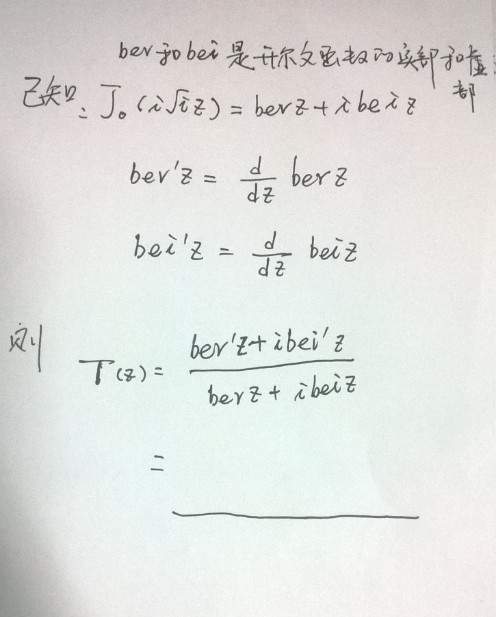 ber和bei是开尔文函数的实部和虚
部
已知: J₀(i√i z) = ber z + i bei z
ber'z = d/dz ber z
bei'z = d/dz bei z
则 T(z) = (ber'z + i bei'z)/(ber z + i bei z)
=